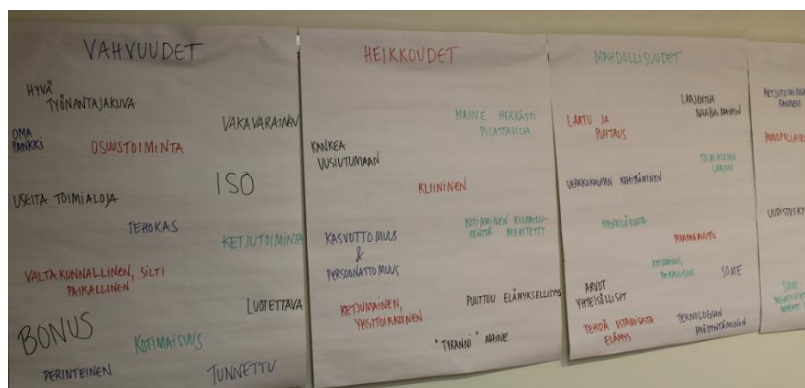 VAHVUUDET
HYVÄ
TYÖNANTAJAKUVA
VAKAVARAINEN
OMA
PANKKI
OSUUSTOIMINTA
ISO
USEITA TOIMIALOJA
TEHOKAS
KETJUTOIMINTA
VALTAKUNNALLINEN, SILTI
PAIKALLINEN
LUOTETTAVA
BONUS
KOTIMAISUUS
PERINTEINEN
TUNNETTU
HEIKKOUDET
MAINE HERKÄSTI
PILATTAVISSA
KANKEA
UUSIUTUMAAN
KLIININEN
KOTIMAINEN KILPAILU-
KENTTÄ MIEHITETTY
KASVOTTOMUUS
&
PERSOONATTOMUUS
KETJUMAINEN,
YKSITOIKKOINEN
PUUTTUU ELÄMYKSELLISYYS
"TYRANNI" MAINE
MAHDOLLISUUDET
LAAJENTUA
LAATU JA
PUHTAUS
TOIMIALOJEN
LAAJUUS
VERKKOKAUPAN KEHITTÄMINEN
HENKILÖKUNTA
MAAHANMUUTTO
KOTIMAISUUS,
PAIKALLISUUS
SOME
ARVOT
YHTEISÖLLISET
TEHDÄ OSTAMISESTA
ELÄMYS
TEKNOLOGIAN
HYÖDYNTÄMINEN
SOME